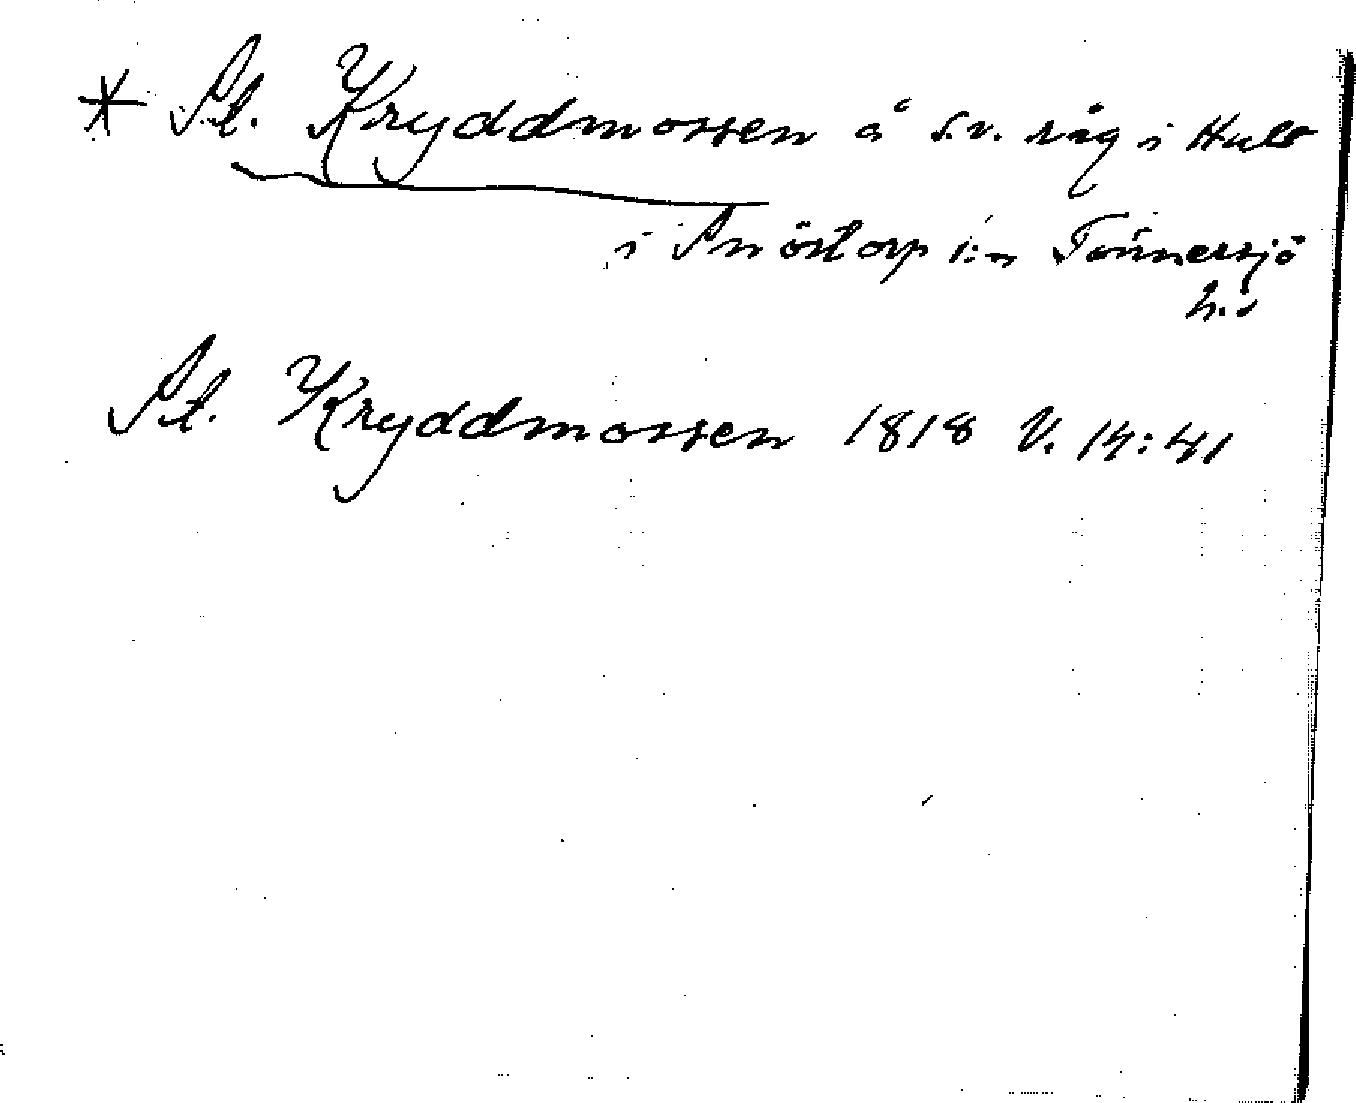 * St. Kryddmossen å s.v. väg i Hule
i Snöstorp i:n Tönnersjö
h.
St. Kryddmossen 1818 V. 14:41